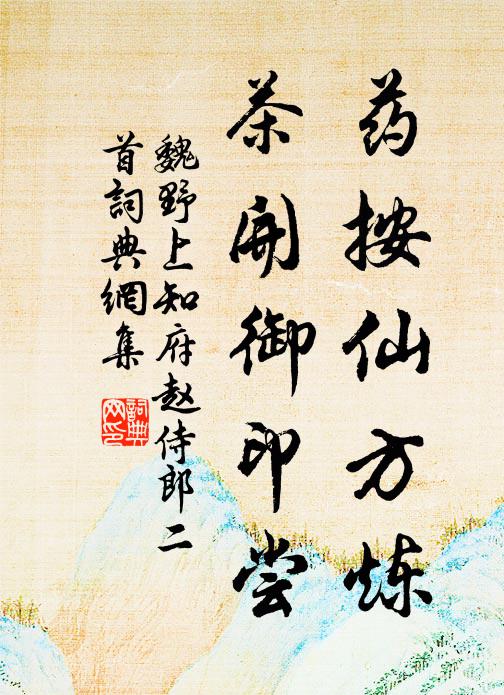 药按仙方炼
茶开御印尝
魏野上知府赵侍郎二
首詞典網集
詞典
网印